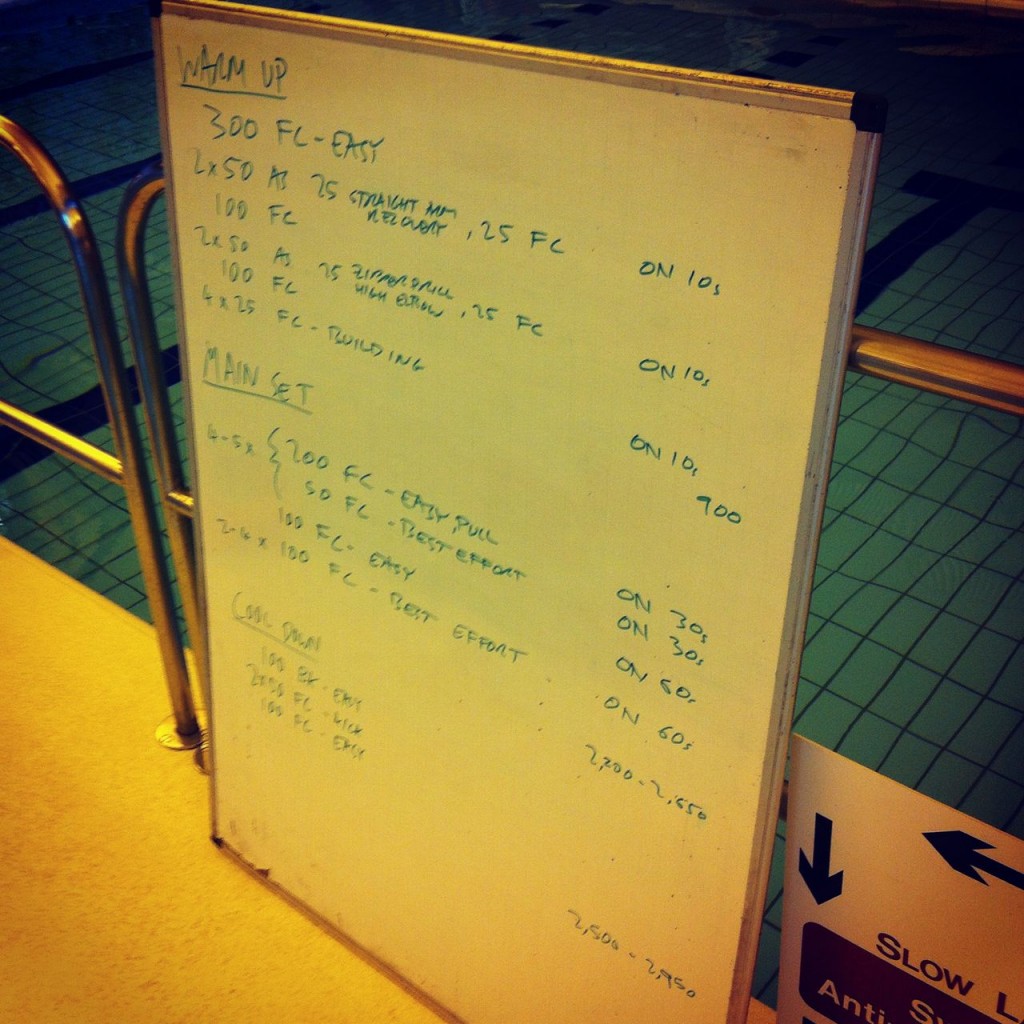 WARM UP
300 FC - EASY
2x50 AS 25 STRAIGHT ARM RECOVERY, 25 FC ON 10s
100 FC
2x50 AS 25 ZIPPER DRILL HIGH ELBOW, 25 FC ON 10s
100 FC
4x25 FC - BUILDING ON 10s
900
MAIN SET
4-5x { 200 FC - EASY PULL ON 30s
50 FC - BEST EFFORT ON 30s
100 FC - EASY ON 60s
2-4x 100 FC - BEST EFFORT ON 60s
2,200 - 2,650
COOL DOWN
100 BK - EASY
2x50 FC - KICK
100 FC - EASY
2,500 - 2,950
SLOW L
Anti